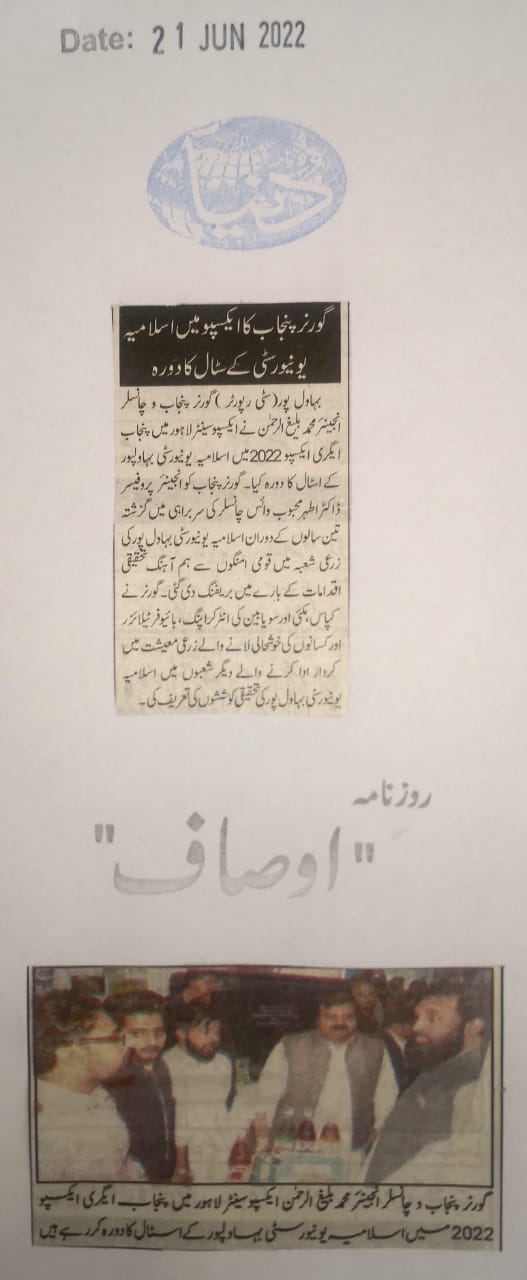 Date: 21 JUN 2022
دنیا
گورنر پنجاب کا ایکسپو میں اسلامیہ
یونیورسٹی کے سٹال کا دورہ
بہاول پور(سٹی رپورٹر )گورنر پنجاب و چانسلر
انجینئر محمد بلیغ الرحمٰن نے ایکسپو سینٹر لاہور میں پنجاب
ایگری ایکسپو 2022 میں اسلامیہ یونیورسٹی بہاولپور
کے اسٹال کا دورہ کیا۔ گورنر پنجاب کو انجینئر پروفیسر
ڈاکٹر اطہر محبوب وائس چانسلر کی سربراہی میں گزشتہ
تین سالوں کے دوران اسلامیہ یونیورسٹی بہاول پور کی
زرعی شعبہ میں قومی امنگوں سے ہم آہنگ تحقیقی
اقدامات کے بارے میں بریفنگ دی گئی۔ گورنر نے
کپاس، مکئی اور سویابین کی انٹر کراپنگ، بائیو فرٹیلائزر
اور کسانوں کی خوشحالی لانے والے زرعی معیشت میں
کردار ادا کرنے والے دیگر شعبوں میں اسلامیہ
یونیورسٹی بہاول پور کی تحقیقی کوششوں کی تعریف کی۔
روزنامہ
"اوصاف"
گورنر پنجاب و چانسلر انجینئر محمد بلیغ الرحمٰن ایکسپو سینٹر لاہور میں پنجاب ایگری ایکسپو
2022 میں اسلامیہ یونیورسٹی بہاولپور کے اسٹال کا دورہ کر رہے ہیں